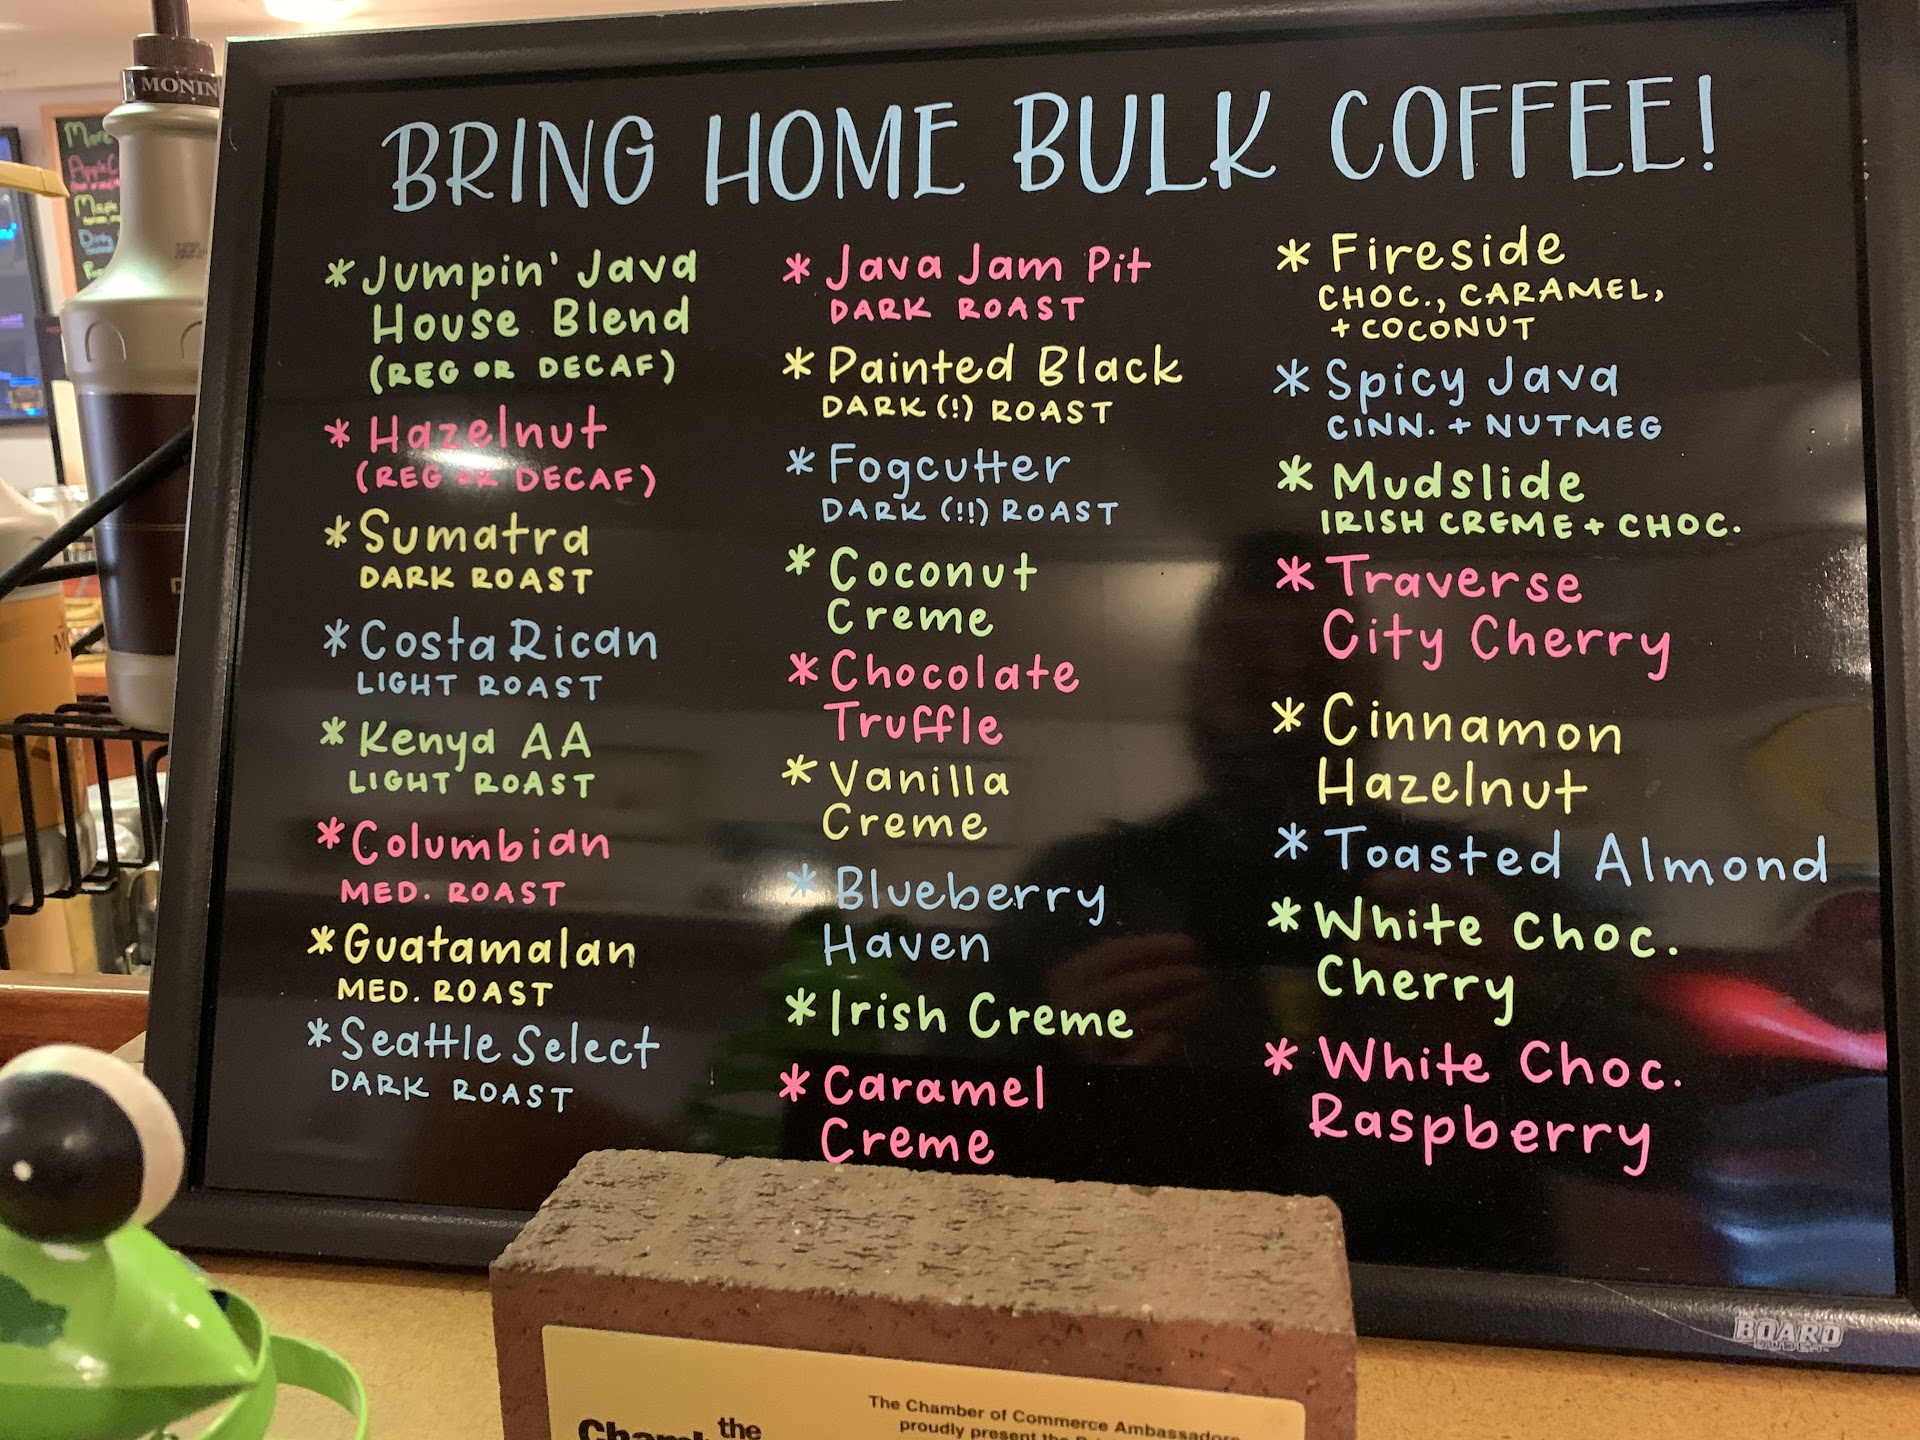 MONIN
BRING HOME BULK COFFEE!
* Jumpin' Java
House Blend
(REG OR DECAF)
* Hazelnut
(REG OR DECAF)
* Sumatra
DARK ROAST
* Costa Rican
LIGHT ROAST
* Kenya AA
LIGHT ROAST
* Columbian
MED. ROAST
* Guatamalan
MED. ROAST
* Seattle Select
DARK ROAST
* Java Jam Pit
DARK ROAST
* Painted Black
DARK (!) ROAST
* Fogcutter
DARK (!!) ROAST
* Coconut
Creme
* Chocolate
Truffle
* Vanilla
Creme
* Blueberry
Haven
* Irish Creme
* Caramel
Creme
* Fireside
CHOC., CARAMEL,
+ COCONUT
* Spicy Java
CINN. + NUTMEG
* Mudslide
IRISH CREME + CHOC.
* Traverse
City Cherry
* Cinnamon
Hazelnut
* Toasted Almond
* White Choc.
Cherry
* White Choc.
Raspberry
BOARD
the
The Chamber of Commerce Ambassadors
proudly present the